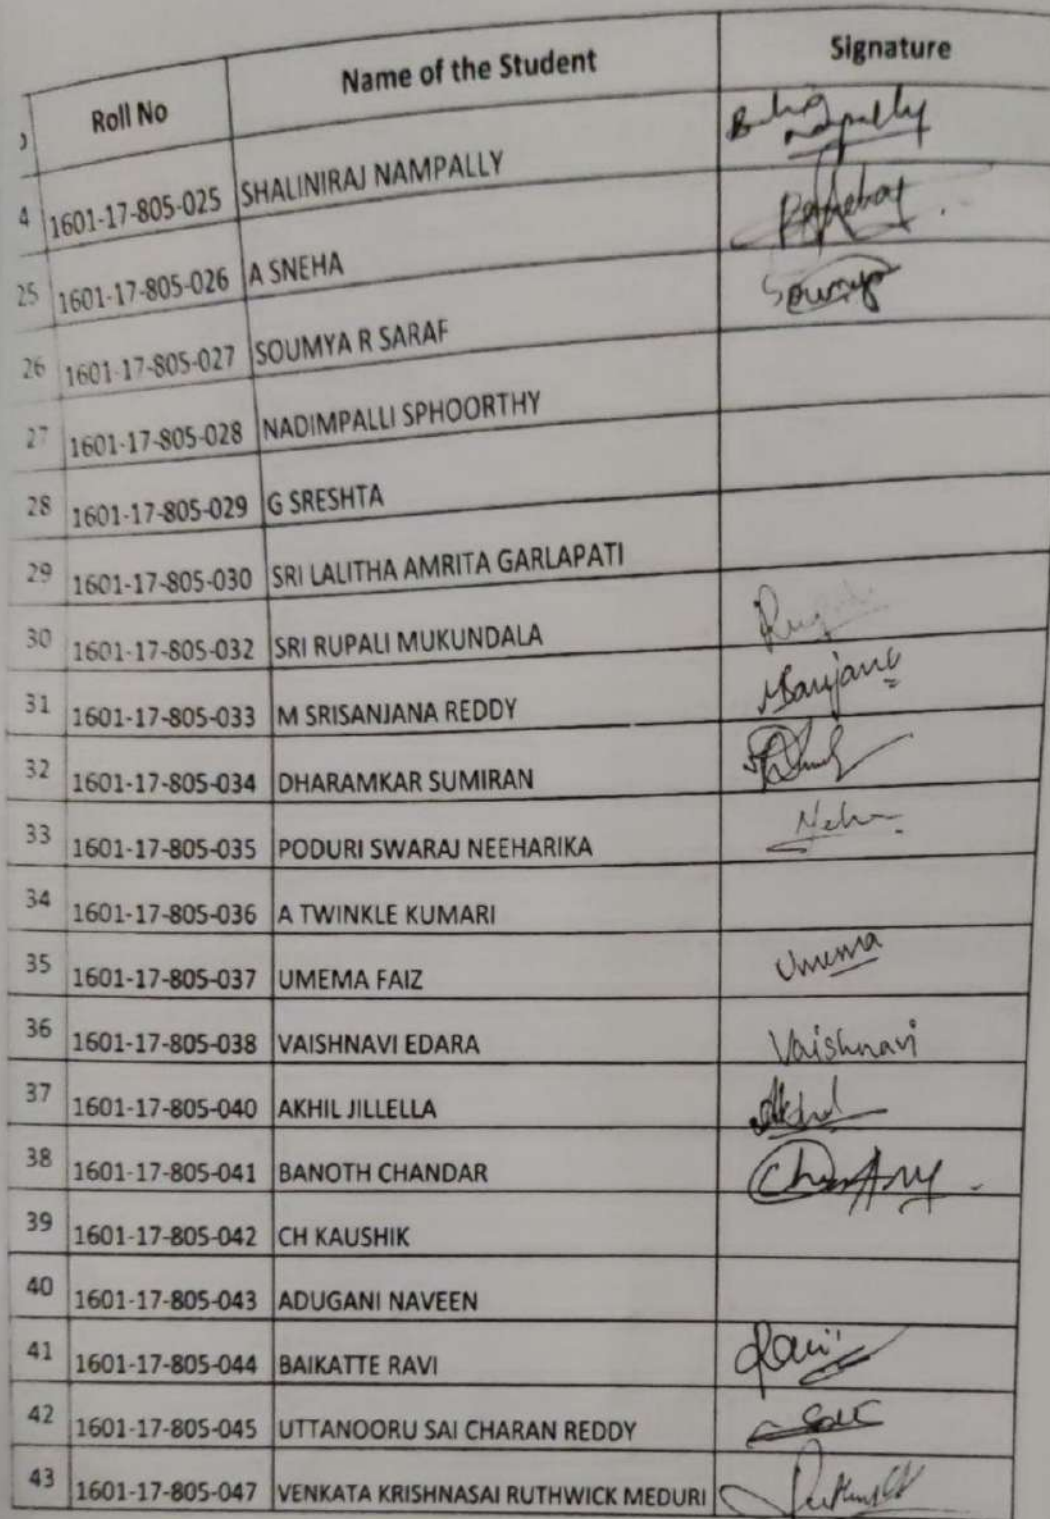 Roll No Name of the Student Signature
4 1601-17-805-025 SHALINIRAJ NAMPALLY nampally
25 1601-17-805-026 A SNEHA
26 1601-17-805-027 SOUMYA R SARAF Soumya
27 1601-17-805-028 NADIMPALLI SPHOORTHY
28 1601-17-805-029 G SRESHTA
29 1601-17-805-030 SRI LALITHA AMRITA GARLAPATI
30 1601-17-805-032 SRI RUPALI MUKUNDALA
31 1601-17-805-033 M SRISANJANA REDDY MSanjana
32 1601-17-805-034 DHARAMKAR SUMIRAN
33 1601-17-805-035 PODURI SWARAJ NEEHARIKA Neha
34 1601-17-805-036 A TWINKLE KUMARI
35 1601-17-805-037 UMEMA FAIZ Umema
36 1601-17-805-038 VAISHNAVI EDARA Vaishnavi
37 1601-17-805-040 AKHIL JILLELLA Akhil
38 1601-17-805-041 BANOTH CHANDAR
39 1601-17-805-042 CH KAUSHIK
40 1601-17-805-043 ADUGANI NAVEEN
41 1601-17-805-044 BAIKATTE RAVI Ravi
42 1601-17-805-045 UTTANOORU SAI CHARAN REDDY
43 1601-17-805-047 VENKATA KRISHNASAI RUTHWICK MEDURI